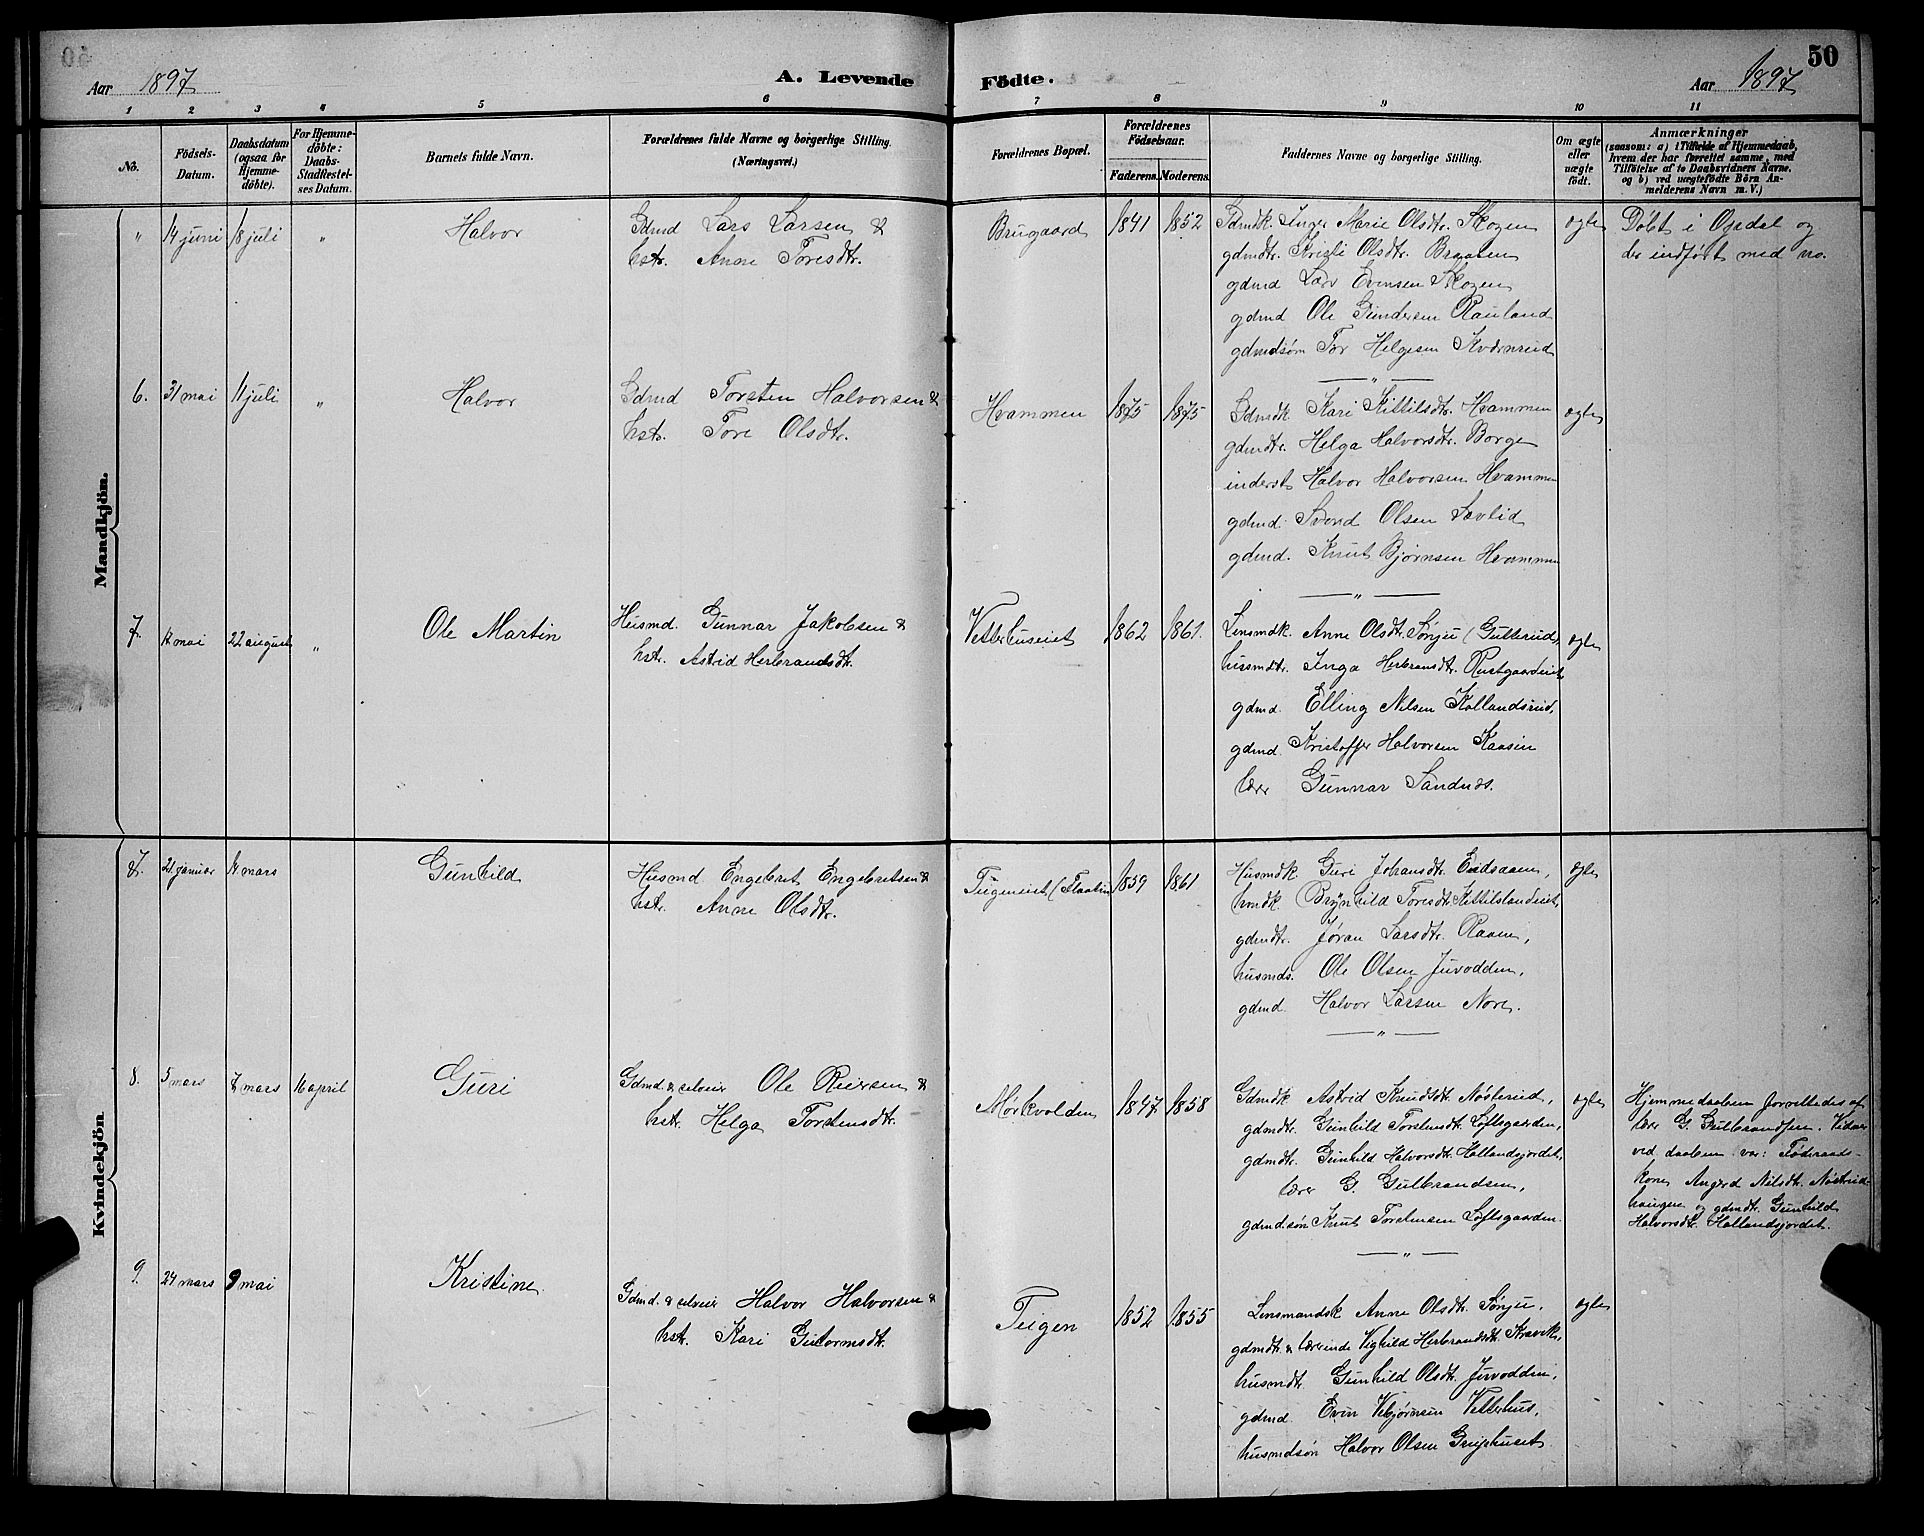 50
Aar 1897
A. Levende
Födte.
Aar 1897
1 2 3 4 5 6 7 8 9 10 11
No.
Födsels-Datum.
Daabsdatum (ogsaa for Hjemme-döbte).
For Hjemme-döbte: Daabs-Stadfæstelses Datum.
Barnets fulde Navn.
Forældrenes fulde Navne og borgerlige Stilling.
(Næringsvei.)
Forældrenes Bopæl.
Forældrenes Födselsaar.
Faderens. Moderens.
Faddernes Navne og borgerlige Stilling.
Om ægte eller uægte födt.
Anmærkninger
(saasom: a) i Tilfælde af Hjemmedaab,
hvem der har forrettet samme, med
Tilföielse af to Daabsvidners Navne.
og b) ved uægtefödte Börn An-
melderens Navn m. V.)
Mandkjön.
" 14 juni 18 juli " Halvor
Gdmd Lars Larsen &
hstr. Anne Toresdtr.
Brugaard 1841 1852
Gdmdk. Inger Marie Olsdtr. Skogen
gdmdtr. Kristi Olsdtr. Braaten
gdmd Lars Evensen Skogen
gdmd Ole Gundersen Rauland
gdmdsøn Tor Helgesen Kvœrnrud
ægte
Døbt i Opdal og
der indført med no.
6. 31 mai 11 juli " Halvor
Gdmd Torsten Halvorsen &
hstr. Tore Olsdtr.
Hvammen 1875 1875
Gdmdk Kari Kittilsdtr. Hvammen
gdmdtr. Helga Halvorsdtr. Borge
inderst Halvor Halvorsen Hvammen
gdmd. Svend Olsen Lavlid
gdmd. Knut Bjørnsen Hvammen
ægte
7. mai 22 august " Ole Martin
Husmd. Gunnar Jakobsen &
hstr. Astrid Herbrandsdtr.
Vetterhuseiet 1862 1861.
Lensmdk. Anne Olsdtr. Sønju (Gulterud,
husmdtr. Inga Herbransdtr. Rustgaardeiet,
gdmd. Elling Nilsen Kollandsrud,
gdmd. Kristoffer Halvorsen Kaasin
lærer Gunnar Sandnes.
ægte
Kvindekjön
7. 21 januar 14 mars Gunhild
Husmd. Engebret Engebretsen &
hstr. Anne Olsdtr.
Teigeneiet (Flaatin 1859 1861
Husmdk. Guri Johansdtr. Eidsaaen,
hmdk. Brynhild Toresdtr. Kittilslandeiet,
gdmdtr. Jøran Larsdtr. Raaen,
husmds. Ole Olsen Juvodden,
gdmd. Halvor Larsen Nore.
ægte
8. 5 mars 7 mars 16 april Guri
Gdmd. & selveier Ole Reiersen &
hstr. Helga Torstensdtr.
Mørkvolden 1847 1858
Gdmdk Astrid Knudsdtr. Nøsterud,
gdmdtr. Gunhild Torstensdtr. Loftsgaarden,
gdmdtr. Gunhild Halvorsdtr. Hallandsjordet,
lærer G. Gulbrandsen,
gdmdsøn Knut Torstensen Loftsgaarden.
ægte
Hjemmedaaben forrettedes af
lærer G. Gulbrandsen. Vidner
ved daaben var: Føderaads-
kone Angerd Nilsdtr. Nøstrud-
haugen og gdmdtr. Gunhild
Halvorsdtr. Hallandsjordet.
9. 24 mars 9 mai Kristine
Gdmd. & selveier Halvor Halvorsen &
hstr. Kari Gutormsdtr.
Teigen 1852 1855
Lensmandsk Anne Olsdtr. Sønju,
gdmdtr. & lærerinde Vighild Herbrandsdtr. Kravik,
husmdtr. Gunhild Olsdtr. Juvodden,
gdmd. Even Vebjørnsen Vetterhus,
husmdsøn Halvor Olsen
ægte